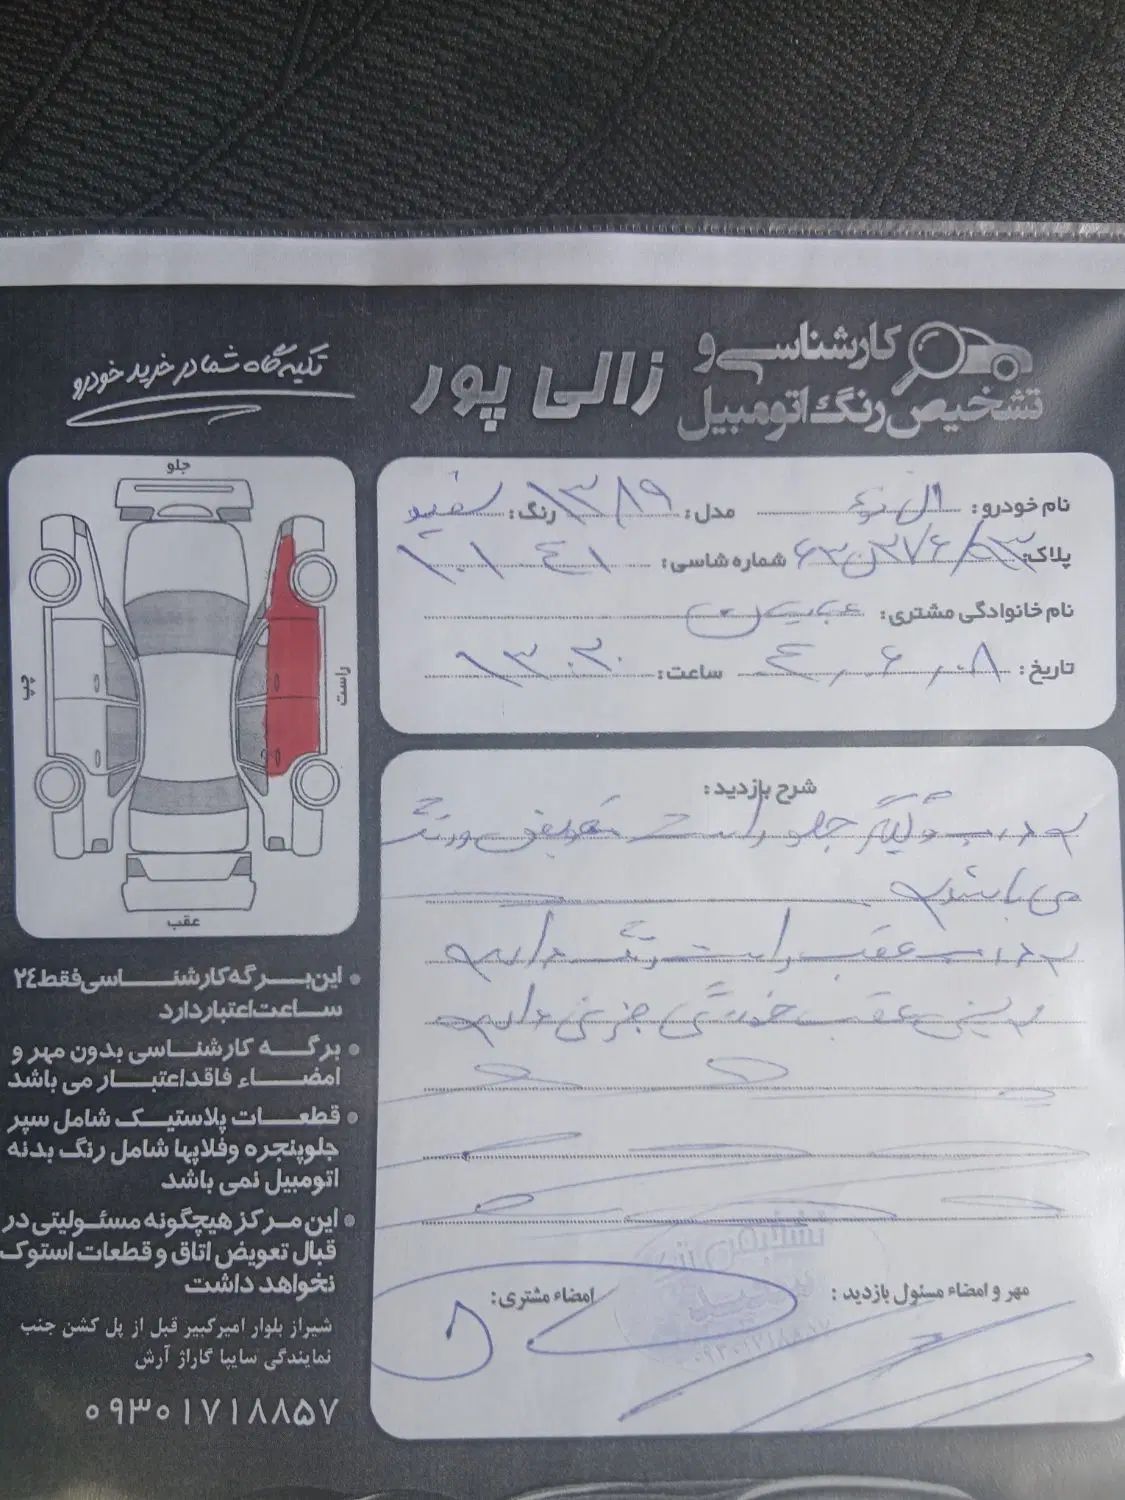 کارشناسی و
تشخیص رنگ اتومبیل
زالی پور
تکیه گاه شما در خرید خودرو
نام خودرو: ال نود مدل: ۱۳۸۹ رنگ: سفید
پلاک: شماره شاسی: ۱۰۱۰۴۱
نام خانوادگی مشتری:
تاریخ: ۰۴،۶،۰۸ ساعت: ۱۳:۳۰
شرح بازدید:
درب و گلگیر جلو راست تعویض و رنگ
می باشد
درب عقب راست رنگ دارد
سینی عقب خوردگی جزئی دارد
مهر و امضاء مسئول بازدید:
امضاء مشتری:
جلو
راست
چپ
عقب
این برگه کارشناسی فقط ۲۴
ساعت اعتبار دارد
برگه کارشناسی بدون مهر و
امضاء فاقد اعتبار می باشد
قطعات پلاستیک شامل سپر
جلوپنجره وفلاپها شامل رنگ بدنه
اتومبیل نمی باشد
این مرکز هیچگونه مسئولیتی در
قبال تعویض اتاق و قطعات استوک
نخواهد داشت
شیراز بلوار امیرکبیر قبل از پل کشن جنب
نمایندگی سایپا گاراژ آرش
۰۹۳۰۱۷۱۸۸۵۷